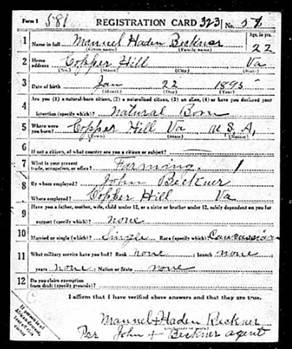 Form 1 581 REGISTRATION CARD 3231 No. 58
1 Name in full Mannel Haden Beckner Age, in yrs. 22
2 Home address Copper Hill Va
3 Date of birth Jan 22 1895
4 Are you (1) a natural-born citizen, (2) a naturalized citizen, (3) an alien, (4) or have you declared your
intention (specify which)? Natural Born
5 Where were you born? Copper Hill Va U.S.A.
6 If not a citizen, of what country are you a citizen or subject?
7 What is your present trade, occupation, or office? Farming 1
8 By whom employed? John Beckner
Where employed? Copper Hill Va
9 Have you a father, mother, wife, child under 12, or a sister or brother under 12, solely dependent on you for
support (specify which)? none
10 Married or single (which)? Single Race (specify which)? Caucassian
11 What military service have you had? Rank none branch none
years none Nation or State none
12 Do you claim exemption from draft (specify grounds)?
I affirm that I have verified above answers and that they are true.
Mannel + Haden Beckner
Per John + Beckner agent